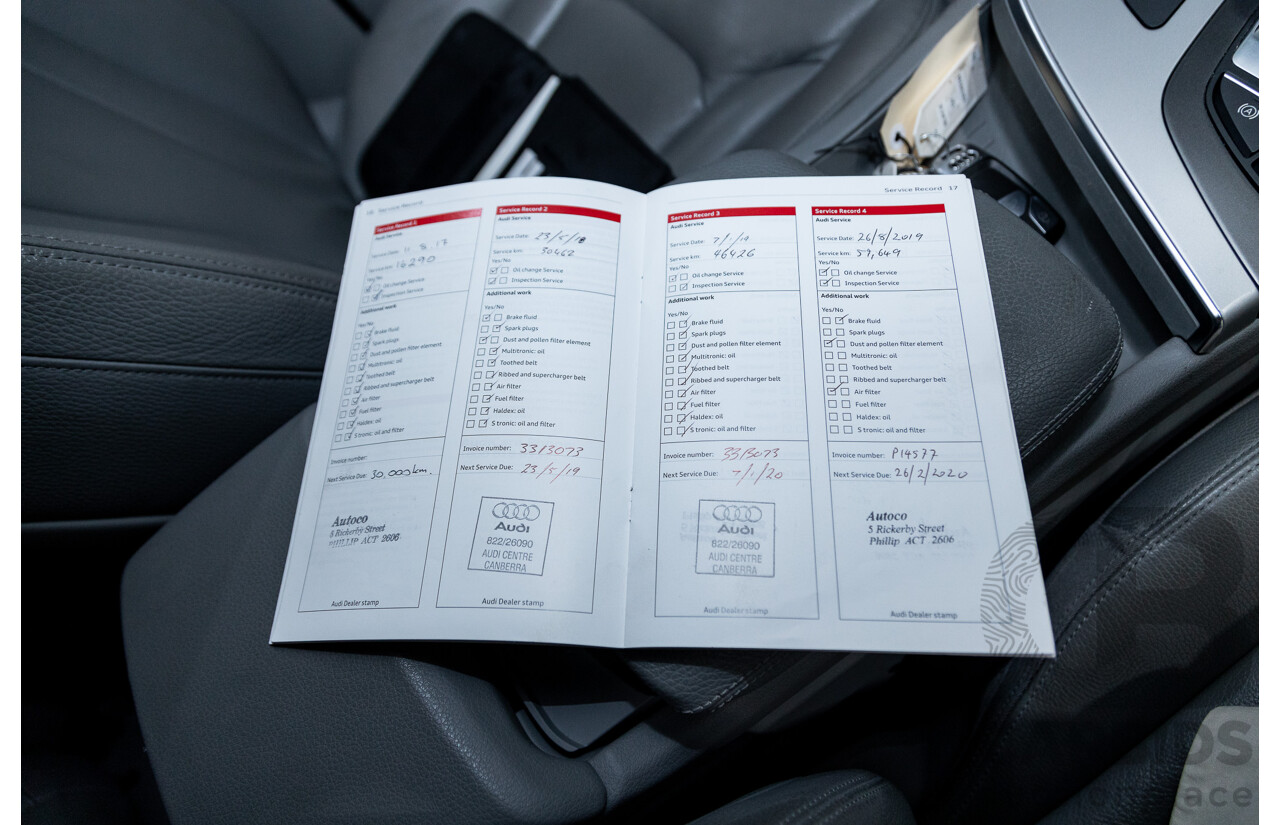 16 Service Record
Service Record 1
Audi Service
Service Date: 11.8.17
Service km: 14290
Yes/No
Oil change Service
Inspection Service
Additional work
Yes/No
Brake fluid
Spark plugs
Dust and pollen filter element
Multitronic: oil
Toothed belt
Ribbed and supercharger belt
Air filter
Fuel filter
Haldex: oil
S tronic: oil and filter
Invoice number:
Next Service Due: 30,000km.
Autoco
5 Rickerby Street
PHILLIP ACT 2606
Audi Dealer stamp
Service Record 2
Audi Service
Service Date: 23/5/18
Service km: 30462
Yes/No
Oil change Service
Inspection Service
Additional work
Yes/No
Brake fluid
Spark plugs
Dust and pollen filter element
Multitronic: oil
Toothed belt
Ribbed and supercharger belt
Air filter
Fuel filter
Haldex: oil
S tronic: oil and filter
Invoice number: 3313073
Next Service Due: 23/5/19
Audi
822/26090
AUDI CENTRE
CANBERRA
Audi Dealer stamp
Service Record 17
Service Record 3
Audi Service
Service Date: 7/1/19
Service km: 46426
Yes/No
Oil change Service
Inspection Service
Additional work
Yes/No
Brake fluid
Spark plugs
Dust and pollen filter element
Multitronic: oil
Toothed belt
Ribbed and supercharger belt
Air filter
Fuel filter
Haldex: oil
S tronic: oil and filter
Invoice number: 3313073
Next Service Due: 7/1/20
Audi
822/26090
AUDI CENTRE
CANBERRA
Audi Dealer stamp
Service Record 4
Audi Service
Service Date: 26/8/2019
Service km: 57,649
Yes/No
Oil change Service
Inspection Service
Additional work
Yes/No
Brake fluid
Spark plugs
Dust and pollen filter element
Multitronic: oil
Toothed belt
Ribbed and supercharger belt
Air filter
Fuel filter
Haldex: oil
S tronic: oil and filter
Invoice number: P14577
Next Service Due: 26/2/2020
Autoco
5 Rickerby Street
Phillip ACT 2606
Audi Dealer stamp